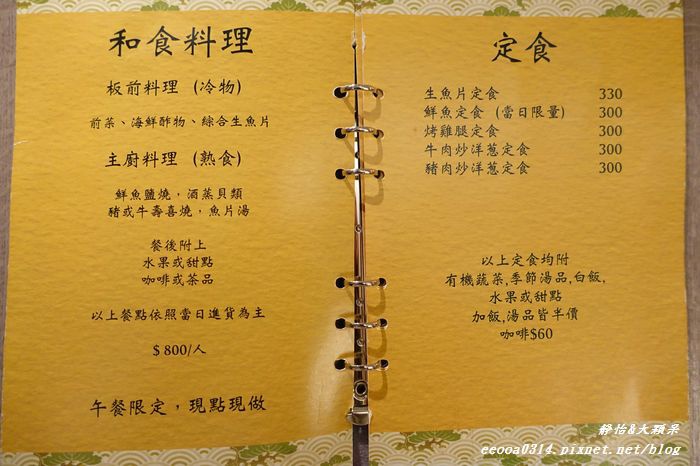 和食料理
板前料理 (冷物)
前菜、海鮮酢物、綜合生魚片
主廚料理 (熱食)
鮮魚鹽燒，酒蒸貝類
豬或牛壽喜燒，魚片湯
餐後附上
水果或甜點
咖啡或茶品
以上餐點依照當日進貨為主
$800/人
午餐限定，現點現做
定食
生魚片定食 330
鮮魚定食 (當日限量) 300
烤雞腿定食 300
牛肉炒洋蔥定食 300
豬肉炒洋蔥定食 300
以上定食均附
有機蔬菜,季節湯品,白飯,
水果或甜點
加飯,湯品皆半價
咖啡$60
靜怡&大顆呆
eeooa0314.pixnet.net/blog